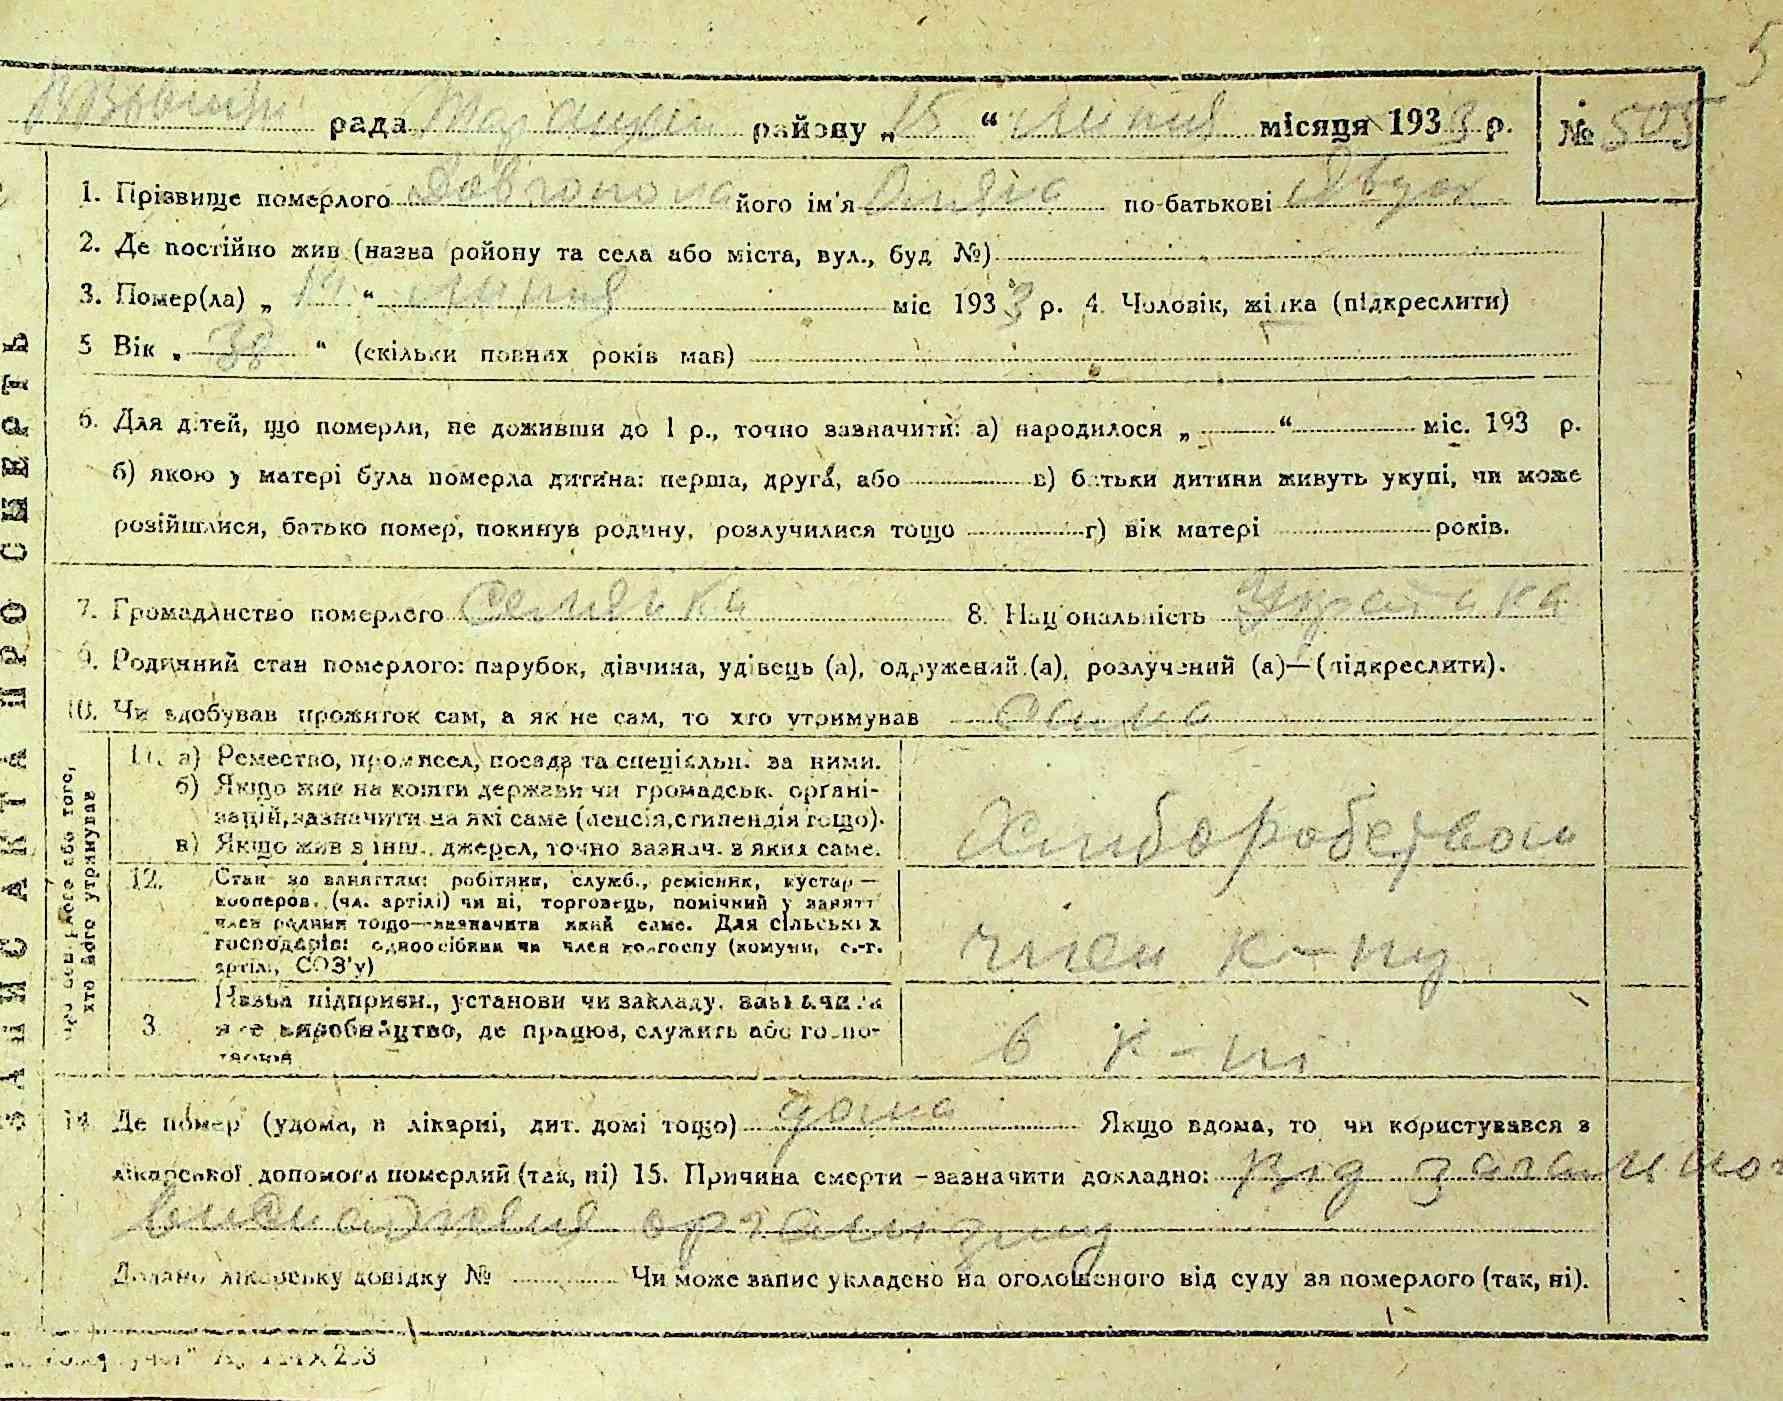 5
рада району „15“ липня місяця 1933 р. № 505
1. Прізвище померлого Довгопола його ім'я по-батькові
2. Де постійно жив (назва ройону та села або міста, вул., буд №)
3. Помер(ла) „ “ липня міс 1933 р. 4. Чоловік, жінка (підкреслити)
5 Вік „ 38 “ (скільки повних років мав)
6. Для дітей, що померли, не доживши до 1 р., точно зазначити: а) народилося „ “ міс. 193 р.
б) якою у матері була померла дитина: перша, друга, або в) батьки дитини живуть укупі, чи може
розійшлися, батько помер, покинув родину, розлучилися тощо г) вік матері років.
7. Громадянство померлого селянка 8. Національність Українка
9. Родинний стан померлого: парубок, дівчина, удівець (а), одружений (а), розлучений (а)—(підкреслити).
10. Чи здобував прожиток сам, а як не сам, то хто утримував сама
11. а) Ремество, промисел, посада та спеціяльн. за ними.
б) Якщо жив на кошти держави чи громадськ. органі-
зацій, зазначити на які саме (пенсія, стипендія тощо).
в) Якщо жив з інш. джерел, точно зазнач. з яких саме.
Хліборобством
12. Стан за заняттям: робітник, служб., ремісник, кустар—
кооперов. (чл. артілі) чи ні, торговець, помічний у занятт
член родини тощо—зазначити який саме. Для сільських
господарів: одноосібник чи член колгоспу (комуни, с.-г.
артілі, СОЗ'у)
член к-пу
3. Назва підприєм., установи чи закладу, зазначити
яке виробництво, де працює, служить або
в к-пі
14 Де помер (удома, в лікарні, дит. домі тощо) дома Якщо вдома, то чи користувався з
лікарської допомоги померлий (так, ні) 15. Причина смерти – зазначити докладно: від
виснаження організму
Додано лікарську довідку № Чи може запис укладено на оголошеного від суду за померлого (так, ні).
ЗАПИС АКТА ПРО СМЕРТЬ
про померлого або того,
хто його утримував